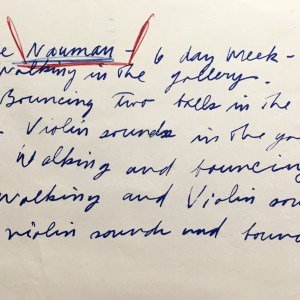 e Nauman - 6 day week -
Walking in the gallery.
Bouncing Two balls in the
- Violin sounds in the ga
Walking and bouncing
Walking and Violin sou
violin sounds and boun